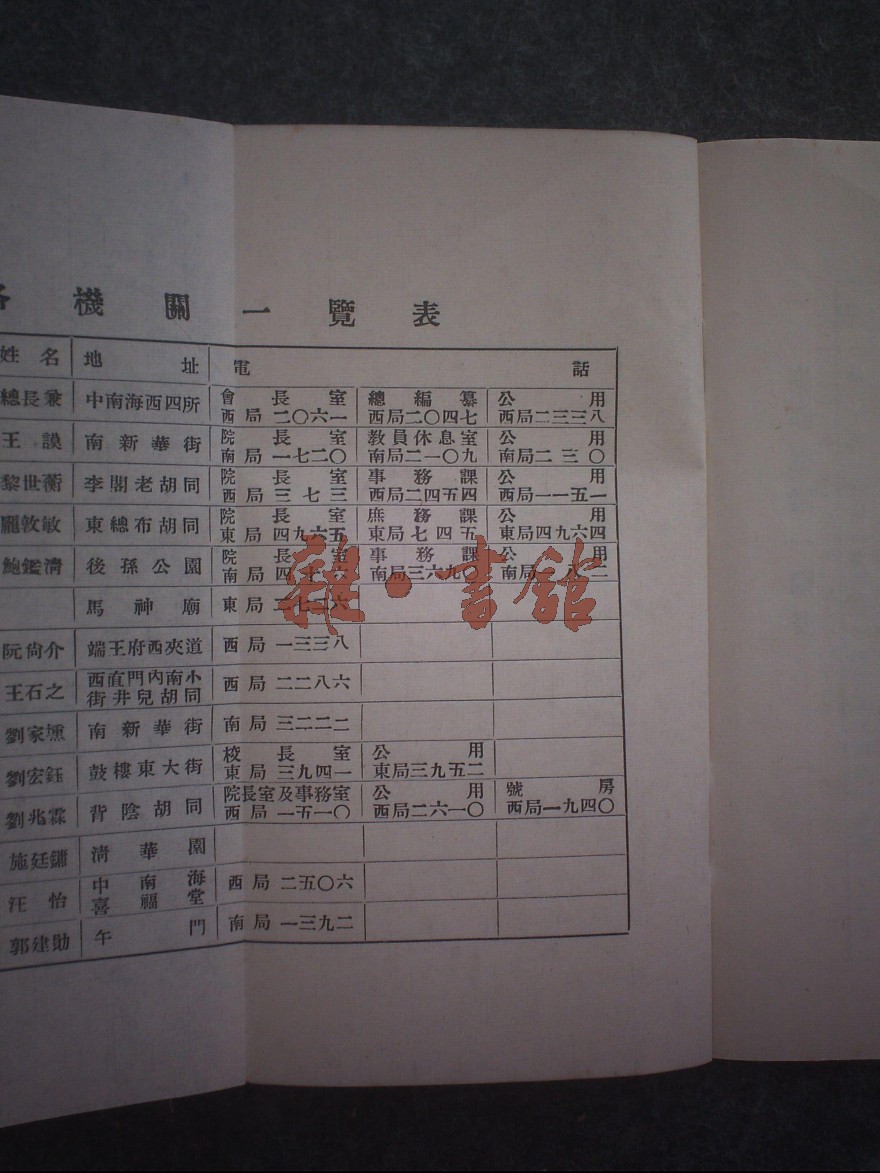 機關一覽表
姓名 地址 電話
總長兼 中南海西四所 會長室 西局二〇六一 總編纂 西局二〇四七 公用 西局二三三八
王謨 南新華街 院長室 南局一七二〇 教員休息室 南局二一〇九 公用 南局二三〇
黎世蘅 李閣老胡同 院長室 西局三七三 事務課 西局二四五四 公用 西局一一五一
龐敦敏 東總布胡同 院長室 東局四九六五 庶務課 東局七四五 公用 東局四九六四
鮑鑑清 後孫公園 院長室 南局 事務課 南局三六九〇 公用 南局
馬神廟 東局
阮尙介 端王府西夾道 西局一三三八
王石之 西直門內南小街井兒胡同 西局二二八六
劉家壎 南新華街 南局三二二二
劉宏鈺 鼓樓東大街 校長室 東局三九四一 公用 東局三九五二
劉兆霖 背陰胡同 院長室及事務室 西局一五一〇 公用 西局二六一〇 號房 西局一九四〇
施廷鏞 清華園
汪怡 中南海喜福堂 西局二五〇六
郭建助 午門 南局一三九二
雜·書館